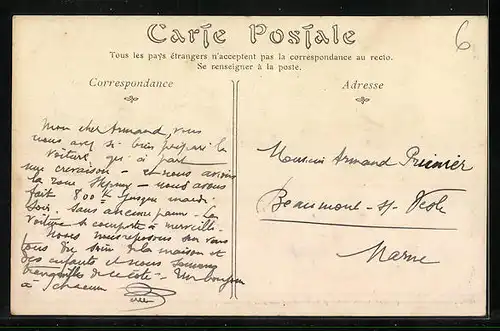 Carte Postale
Tous les pays étrangers n'acceptent pas la correspondance au recto.
Se renseigner à la poste.
6
Correspondance
Mon cher Armand, vous
nous avez si bien préparé la
voiture qu'à part
une crevaison - et nous avions
la roue - nous avons
fait 800 jusque mardi
soir. Sans aucune panne. La
voiture se comporte à merveille.
Nous nous reposons sur vous
tous du soin de la maison et
des enfants et nous sommes
tranquilles de ce côté - Un bonjour
à chacun
Adresse
Monsieur Armand Premier
Beaumont-s/-Vesle
Marne